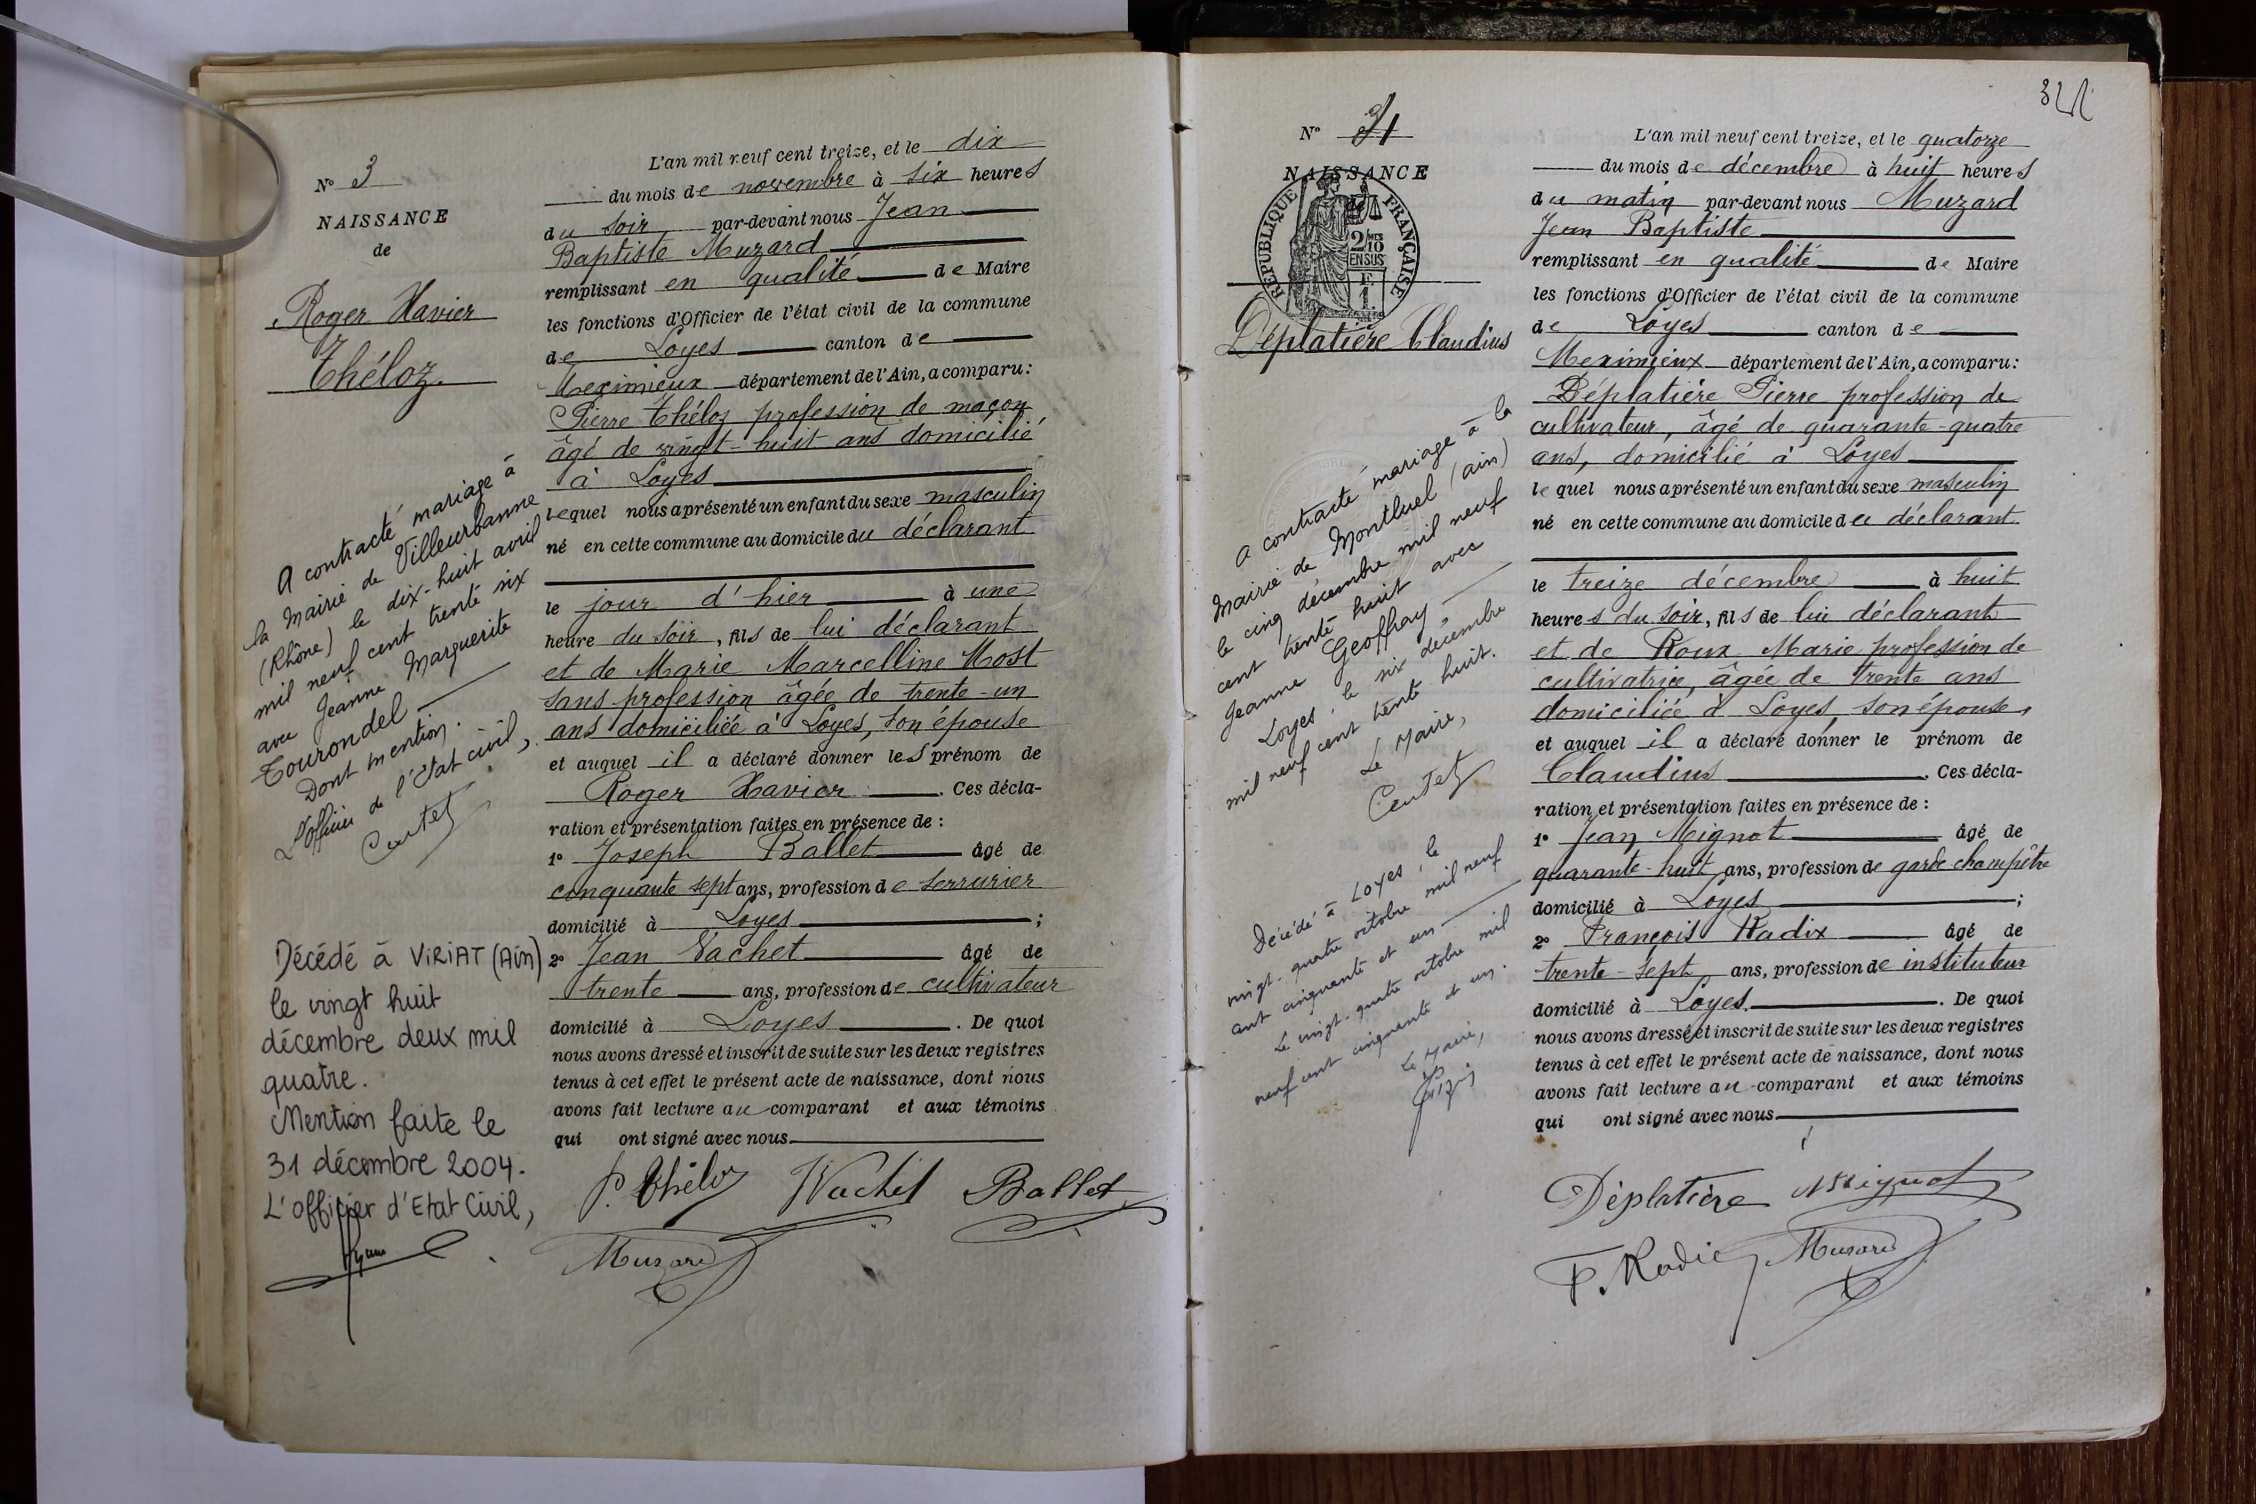 N° 3
NAISSANCE
de
Roger Xavier
Théloz.
A contracté mariage à
la Mairie de Villeurbanne
(Rhône) le dix-huit avril
mil neuf cent trente six
avec Jeanne Marguerite
Tourondel
Dont mention.
L'officier de l'État civil,
Cautet
Décédé à VIRIAT (Ain)
le vingt huit
décembre deux mil
quatre.
Mention faite le
31 décembre 2004.
L'officier d'Etat Civil,
L'an mil neuf cent treize, et le dix
du mois de novembre à six heures
du soir par-devant nous Jean
Baptiste Muzard
remplissant en qualité de Maire
les fonctions d'Officier de l'état civil de la commune
de Loyes canton de
Meximieux département de l'Ain, a comparu:
Pierre Théloz profession de maçon
âgé de vingt-huit ans domicilié
à Loyes
lequel nous a présenté un enfant du sexe masculin
né en cette commune au domicile du déclarant
le jour d'hier à une
heure du soir, fils de lui déclarant
et de Marie Marcelline Most
sans profession âgée de trente-un
ans domiciliée à Loyes, son épouse
et auquel il a déclaré donner les prénom de
Roger Xavier . Ces décla-
ration et présentation faites en présence de :
1° Joseph Ballet âgé de
conquante sept ans, profession de serrurier
domicilié à Loyes ;
2° Jean Vachet âgé de
trente ans, profession de cultivateur
domicilié à Loyes . De quoi
nous avons dressé et inscrit de suite sur les deux registres
tenus à cet effet le présent acte de naissance, dont nous
avons fait lecture au comparant et aux témoins
qui ont signé avec nous
P. Théloz JVachet Ballet
Muzard
N° 31
NAISSANCE
de
REPUBLIQUE FRANÇAISE
2/10
EN SUS
F.
1.
Déplatière Claudius
A contracté mariage à la
Mairie de Montluel (Ain)
le cinq décembre mil neuf
cent trente huit avec
Jeanne Geoffray
Loyes, le six décembre
mil neuf cent trente huit.
Le Maire,
Cautet
Décédé à Loyes, le
vingt-quatre octobre mil neuf
cent cinquante et un
Le vingt-quatre octobre mil
neuf cent cinquante et un.
Le Maire,
L'an mil neuf cent treize, et le quatorze
du mois de décembre à huit heures
du matin par-devant nous Muzard
Jean Baptiste
remplissant en qualité de Maire
les fonctions d'Officier de l'état civil de la commune
de Loyes canton de
Meximieux département de l'Ain, a comparu:
Déplatière Pierre profession de
cultivateur, âgé de quarante-quatre
ans, domicilié à Loyes
lequel nous a présenté un enfant du sexe masculin
né en cette commune au domicile du déclarant
le treize décembre à huit
heures du soir, fils de lui déclarant
et de Roux Marie profession de
cultivatrice, âgée de trente ans
domiciliée à Loyes, son épouse,
et auquel il a déclaré donner le prénom de
Claudius . Ces décla-
ration et présentation faites en présence de :
1° Jean Mignot âgé de
quarante-huit ans, profession de garde champêtre
domicilié à Loyes ;
2° François Radix âgé de
trente-sept ans, profession de instituteur
domicilié à Loyes. . De quoi
nous avons dressé et inscrit de suite sur les deux registres
tenus à cet effet le présent acte de naissance, dont nous
avons fait lecture au comparant et aux témoins
qui ont signé avec nous
Déplatière Mignot
F. Radix Muzard